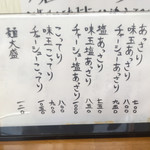 あっさり 七〇〇
味玉あっさり 八〇〇
チャーシューあっさり 九五〇
塩あっさり 七五〇
味玉塩あっさり 八五〇
チャーシュー塩あっさり
こってり 八〇〇
味玉こってり 九〇〇
チャーシューこってり
麺大盛